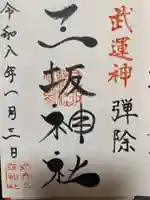 武運神
弾除
三坂神社
令和八年一月三日